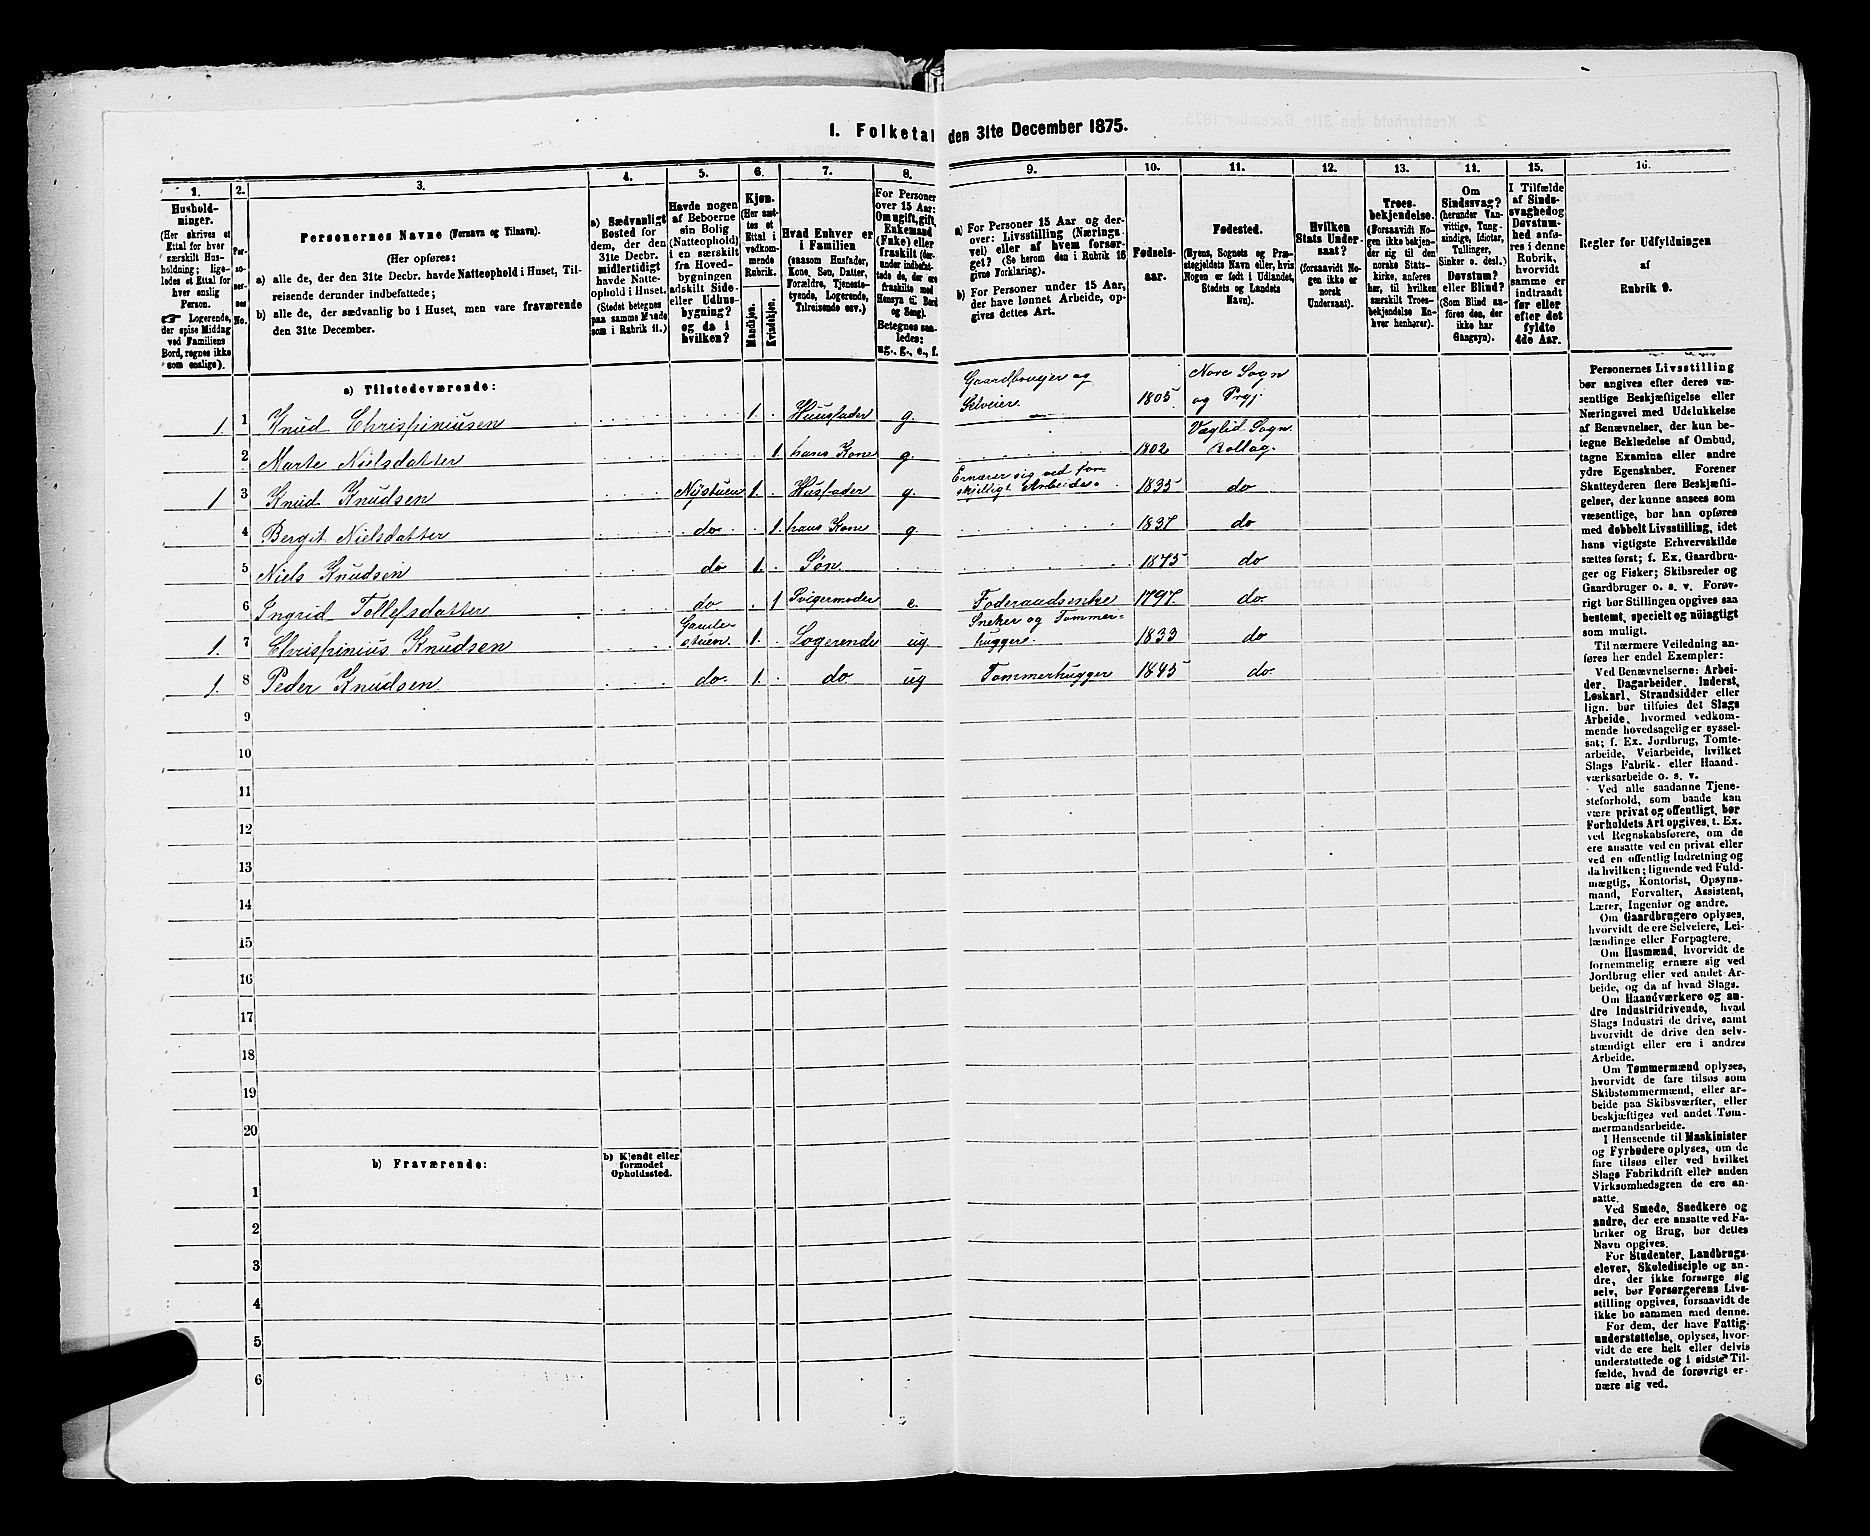 1. Folketal den 31te December 1875.
1. 2. 3. 4. 5. 6. 7. 8. 9. 10. 11. 12. 13. 14. 15. 16.
Hushold-
ninger.
(Her skrives et
Ettal for hver
særskilt Hus-
holdning; lige-
ledes et Ettal for
hver enslig
Person.
☞ Logerende,
der spise Middag
ved Familiens
Bord, regnes ikke
som enslige).
Per-
so-
ner-
nes
No.
Personernes Navne (Fornavn og Tilnavn).
(Her opføres:
a) alle de, der den 31te Decbr. havde Natteophold i Huset, Til-
reisende derunder indbefattede;
b) alle de, der sædvanlig bo i Huset, men vare fraværende
den 31te December.
a) Sædvanligt
Bosted for
dem, der den
31te Decbr.
midlertidigt
havde Natte-
ophold i Huset.
(Stedet betegnes
paa samme Maade
som i Rubrik 11.)
Havde nogen
af Beboerne
sin Bolig
(Natteophold)
i en særskilt
fra Hoved-
bygningen
adskilt Side-
eller Udhus-
bygning?
og da i
hvilken?
Kjøn.
(Her sæt-
tes et
Ettal i
vedkom-
mende
Rubrik.
Mandkjøn.
Kvindekjøn.
Hvad Enhver er
i Familien
(saasom Husfader,
Kone, Søn, Datter,
Forældre, Tjeneste-
tyende, Logerende,
Tilreisende osv.)
For Personer
over 15 Aar:
Om ugift, gift,
Enkemand
(Enke) eller
fraskilt (der-
under indbefat-
tede de, der ere
fraskilte med
Hensyn til Bord
og Seng).
Betegnes saa-
ledes:
ug., g., e., f.
a) For Personer 15 Aar og der-
over: Livsstilling (Nærings-
vei) eller af hvem forsør-
get? (Se herom den i Rubrik 16
givne Forklaring).
b) For Personer under 15 Aar,
der have lønnet Arbeide, op-
gives dettes Art.
Fødsels-
aar.
Fødested.
(Byens, Sognets og Præ-
stegjeldets Navn eller, hvis
Nogen er født i Udlandet,
Stedets og Landets
Navn).
Hvilken
Stats Under-
saat?
(forsaavidt No-
gen ikke er
norsk
Undersaat).
Troes-
bekjendelse.
(Forsaavidt No-
gen ikke bekjen-
der sig til den
norske Stats-
kirke, anføres
her, til hvilken
særskilt Troes-
bekjendelse En-
hver henhører).
Om
Sindssvag?
(herunder Van-
vittige, Tung-
sindige, Idioter,
Tullinger,
Sinker o. desl.).
Døvstum?
eller Blind?
(Som Blind an-
føres den, der
ikke har
Gangsyn).
I Tilfælde
af Sinds-
svaghed og
Døvstum-
hed anfø-
res i denne
Rubrik,
hvorvidt
samme er
indtraadt
før eller
efter det
fyldte
4de Aar.
Regler for Udfyldningen
af
Rubrik 9.
a) Tilstedeværende:
Gaardbruger og Nore Sogn
1 1 Knud Chrispiniusen 1. Huusfader g. Selveier. 1805 og Prgj.
Væglid Sogn
2 Marte Nielsdatter 1 hans Kone g. 1802 Rollag.
Ernærer sig ved for-
1 3 Knud Knudsen Nystuen 1. Husfader g. skjelligt Arbeide. 1835 do
4 Bergit Nielsdatter do 1. hans Kone g. 1837 do
5 Niels Knudsen do 1. Søn. 1875 do
6 Ingrid Tollefsdatter do 1 Svigermoder e. Føderaadsenke 1797. do.
Gamle- Sneker og Tømmer-
1. 7 Chrispinius Knudsen stuen. 1. Logerende ug. hugger. 1833 do
1. 8 Peder Knudsen do. 1. do. ug Tømmerhugger 1845 do.
9
10
11
12
13
14
15
16
17
18
19
20
b) Fraværende:
b) Kjendt eller
formodet
Opholdssted.
1
2
3
4
5
6
Personernes Livsstilling
bør angives efter deres væ-
sentlige Beskjæftigelse eller
Næringsvei med Udelukkelse
af Benævnelser, der kun be-
tegne Beklædelse af Ombud,
tagne Examina eller andre
ydre Egenskaber. Forener
Skatteyderen flere Beskjæfti-
gelser, der kunne ansees som
væsentlige, bør han opføres
med dobbelt Livsstilling, idet
hans vigtigste Erhvervskilde
sættes først; f. Ex. Gaardbru-
ger og Fisker; Skibsreder og
Gaardbruger o. s. v. Forøv-
rigt bør Stillingen opgives saa
bestemt, specielt og nöiagtigt
som muligt.
Til nærmere Veiledning an-
føres her endel Exempler:
Ved Benævnelserne: Arbei-
der, Dagarbeider, Inderst,
Løskarl, Strandsidder eller
lign. bør tilføies det Slags
Arbeide, hvormed vedkom-
mende hovedsagelig er syssel-
sat; f. Ex. Jordbrug, Tomte-
arbeide, Veiarbeide, hvilket
Slags Fabrik- eller Haand-
værksarbeide o. s. v.
Ved alle saadanne Tjene-
steforhold, som baade kan
være privat og offentligt, bør
Forholdets Art opgives, t. Ex.
ved Regnskabsførere, om de
ere ansatte ved en privat eller
ved en offentlig Indretning og
da hvilken; lignende ved Fuld-
mægtig, Kontorist, Opsyns-
mand, Forvalter, Assistent,
Lærer, Ingeniør og andre.
Om Gaardbrugere oplyses,
hvorvidt de ere Selveiere, Lei-
lændinge eller Forpagtere.
Om Husmænd, hvorvidt de
fornemmelig ernære sig ved
Jordbrug eller ved andet Ar-
beide, og da af hvad Slags.
Om Haandværkere og an-
dre Industridrivende, hvad
Slags Industri de drive, samt
hvorvidt de drive den selv-
stændigt eller ere i andres
Arbeide.
Om Tømmermænd oplyses,
hvorvidt de fare tilsøs som
Skibstømmermænd, eller ar-
beide paa Skibsværfter, eller
beskjæftiges ved andet Tøm-
mermandsarbeide.
I Henseende til Maskinister
og Fyrbødere oplyses, om de
fare tilsøs eller ved hvilket
Slags Fabrikdrift eller anden
Virksomhedsgren de ere an-
satte.
Ved Smede, Snedkere og
andre, der ere ansatte ved Fa-
briker og Brug, bør dettes
Navn opgives.
For Studenter, Landbrugs-
elever, Skoledisciple og an-
dre, der ikke forsørge sig
selv, bør Forsørgerens Livs-
stilling opgives, forsaavidt de
ikke bo sammen med denne.
For dem, der have Fattig-
understøttelse, oplyses, hvor-
vidt de ere helt eller delvis
understøttede og i sidste Til-
fælde, hvad de forøvrigt er-
nære sig ved.